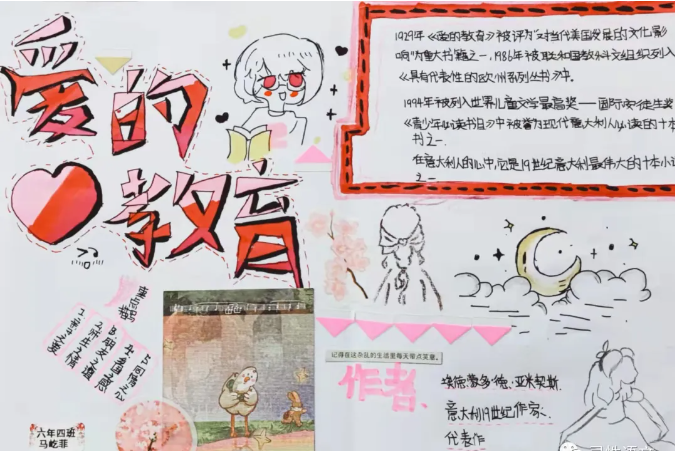 爱的
教育
1929年《爱的教育》被评为对当代美国发展的文化影
响为重大书籍之一,1986年被联和国教科文组织列入
《具有代表性的欧州系列丛书》中。
1994年被列入世界儿童文学最高奖——国际安徒生奖
《青少年必读书目》中被誉为现代意大利人必读的十本
书之一.
在意大利人的心中,它是19世纪意大利最伟大的十本小说
之一
重点吗
1.亲子之爱
2.师生之情
3.朋友之谊
4.爱国之感
5.同情之心
六年四班
马屹菲
记得在这杂乱的生活里每天带点笑意。
作者
埃德蒙多·德·亚米契斯.
意大利19世纪作家.
代表作